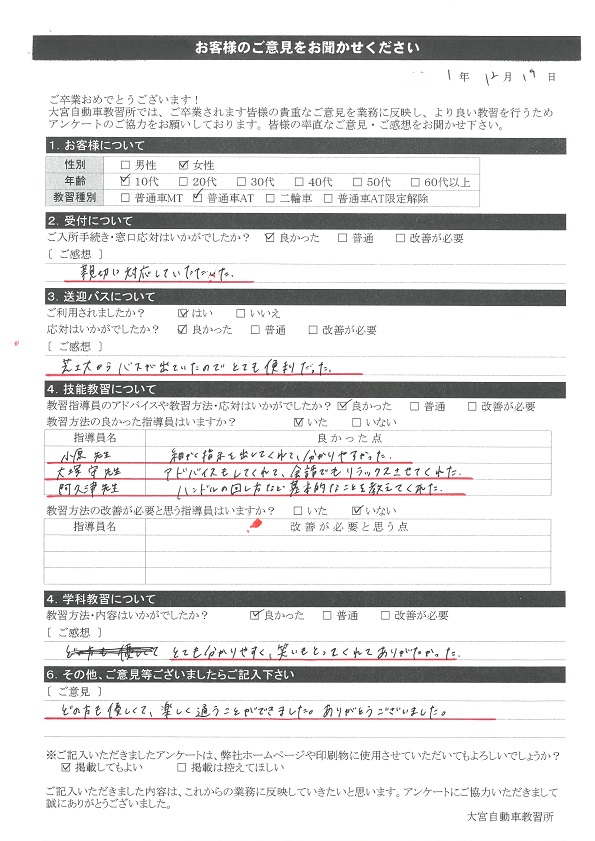 お客様のご意見をお聞かせください
1年 12月 19日
ご卒業おめでとうございます!
大宮自動車教習所では、ご卒業されます皆様の貴重なご意見を業務に反映し、より良い教習を行うため
アンケートのご協力をお願いしております。皆様の率直なご意見・ご感想をお聞かせ下さい。
1. お客様について
性別 □ 男性 ☑ 女性
年齢 ☑ 10代 □ 20代 □ 30代 □ 40代 □ 50代 □ 60代以上
教習種別 □ 普通車MT ☑ 普通車AT □ 二輪車 □ 普通車AT限定解除
2. 受付について
ご入所手続き・窓口応対はいかがでしたか? ☑ 良かった □ 普通 □ 改善が必要
〔 ご感想 〕
親切に対応していただいた.
3. 送迎バスについて
ご利用されましたか? ☑ はい □ いいえ
応対はいかがでしたか? ☑ 良かった □ 普通 □ 改善が必要
〔 ご感想 〕
芝工大からバスが出ていたのでとても便利だった.
4. 技能教習について
教習指導員のアドバイスや教習方法・応対はいかがでしたか? ☑ 良かった □ 普通 □ 改善が必要
教習方法の良かった指導員はいますか? ☑ いた □ いない
指導員名 良かった点
小原 先生 細かく指示を出してくれて、分かりやすかった.
大塚 守 先生 アドバイスもしてくれて、会話でもリラックスさせてくれた.
阿久津 先生 ハンドルの回し方など基本的なことを教えてくれた.
教習方法の改善が必要と思う指導員はいますか? □ いた ☑ いない
指導員名 改善が必要と思う点
4. 学科教習について
教習方法・内容はいかがでしたか? ☑ 良かった □ 普通 □ 改善が必要
〔 ご感想 〕
とても分かりやすく、笑いもとってくれてありがたかった.
6. その他、ご意見等ございましたらご記入下さい
〔 ご意見 〕
どの方も優しくて、楽しく通うことができました。ありがとうございました。
※ご記入いただきましたアンケートは、弊社ホームページや印刷物に使用させていただいてもよろしいでしょうか?
☑ 掲載してもよい □ 掲載は控えてほしい
ご記入いただきました内容は、これからの業務に反映していきたいと思います。アンケートにご協力いただきまして
誠にありがとうございました。
大宮自動車教習所